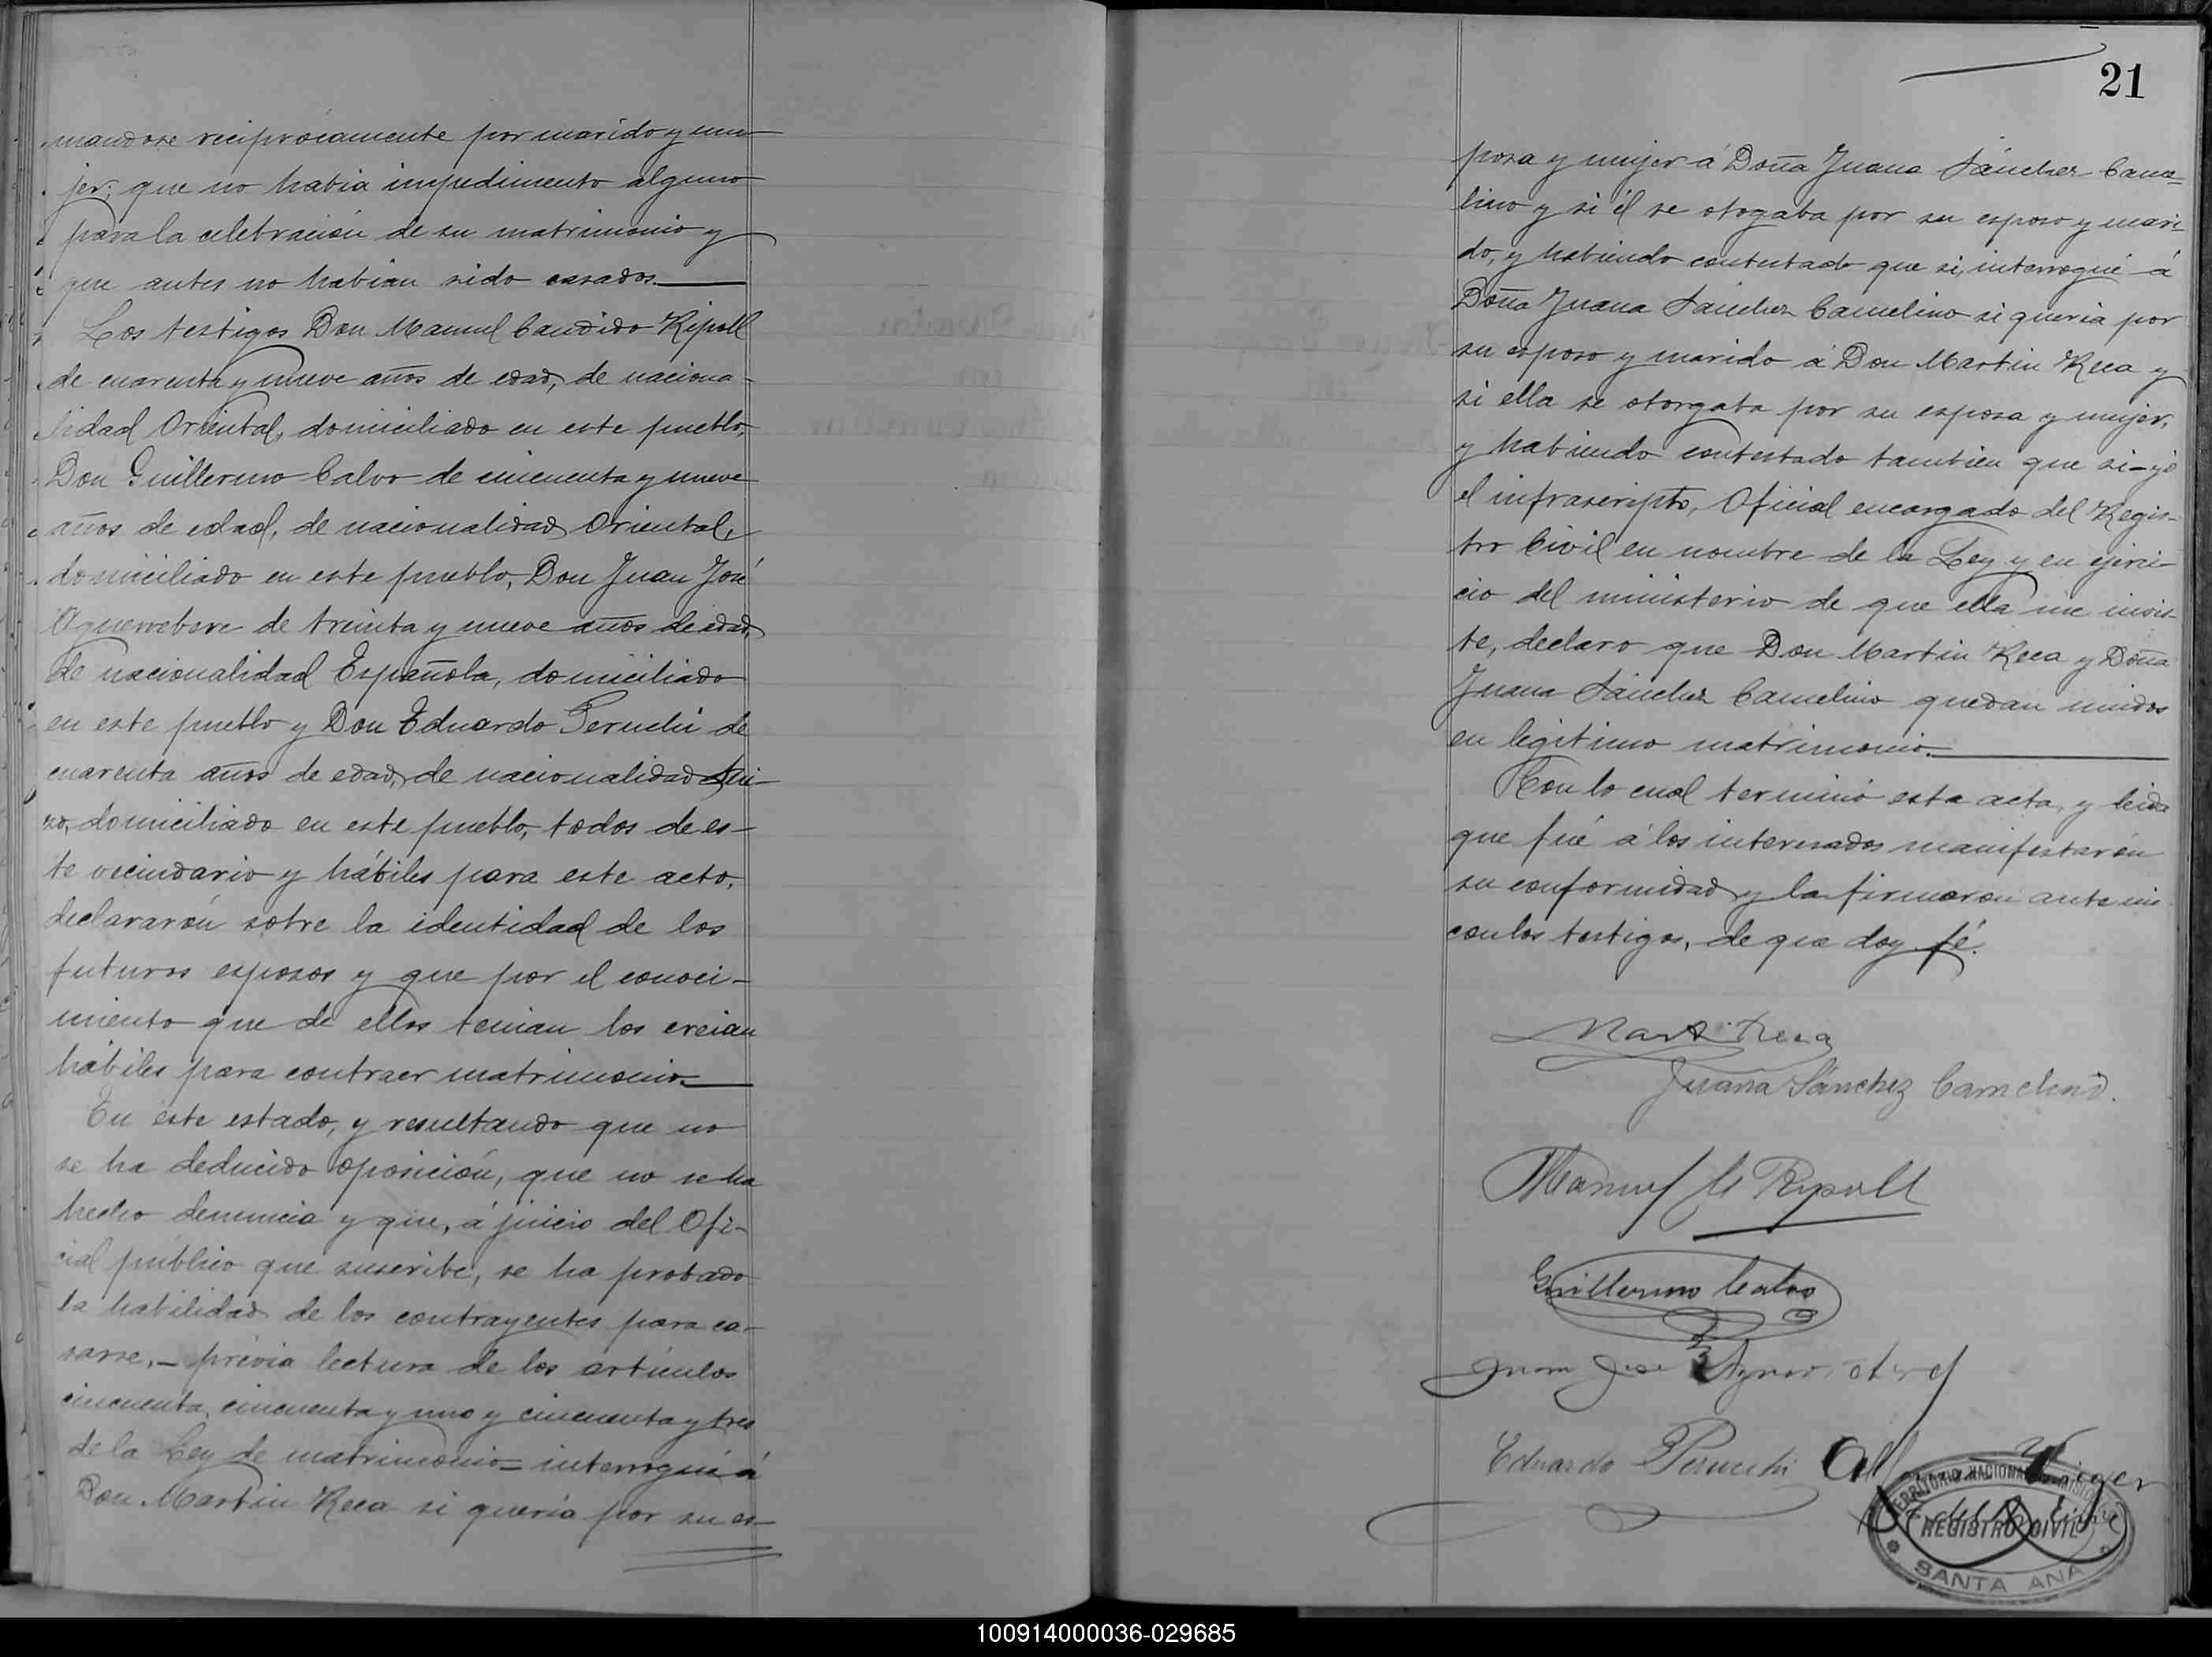 mandose reciprócamente por marido y mu
jer; que no habia impedimento alguno
para la celebración de su matrimonio y
que antes no habian sido casados.
Los testigos Don Manuel Candido Ripoll
de cuarenta y nueve años de edad, de naciona-
lidad Oriental, domiciliado en este pueblo,
Don Guillermo Calvo de cincuenta y nueve
años de edad, de nacionalidad Oriental,
domiciliado en este pueblo, Don Juan José
Aguerrebere de treinta y nueve años de edad,
de nacionalidad Española, domiciliado
en este pueblo y Don Eduardo Peruchi de
cuarenta años de edad, de nacionalidad Sui-
zo, domiciliado en este pueblo, todos de es-
te vecindario y hábiles para este acto,
declararón sobre la identidad de los
futuros esposos y que por el conoci-
miento que de ellos tenian los creian
hábiles para contraer matrimonio.
En este estado, y resultando que no
se ha deducido oposición, que no se ha
hecho denuncia y que, á juicio del Ofi-
cial público que suscribe, se ha probado
la habilidad de los contrayentes para ca-
sarse,- prévia lectura de los artículos
cincuenta, cincuenta y uno y cincuenta y tres
de la Ley de matrimonio= interrogué á
Don Martin Reca si quería por su es-
21
posa y mujer á Doña Juana Sánchez Came=
lino y si él se otogaba por su esposo y mari-
do, y habiendo contestado que si, interrogué á
Doña Juana Sánchez Camelino si quería por
su esposo y marido á Don Martin Reca y
si ella se otorgaba por su esposa y mujer,
y habiendo contestado tambien que si- yó
el infrascripto, Oficial encargado del Regis-
tro Civil en nombre de la Ley y en ejerci-
cio del ministerio de que ella me invis-
te, declaro que Don Martin Reca y Doña
Juana Sánchez Camelino quedan unidos
en legítimo matrimonio.
Con lo cual terminó esta acta, y leida
que fué á los interesados manifestarón
su conformidad y la firmaron ante mi
con los testigos, de que doy fé.
Martin Reca
Juana Sánchez Camelino.
Manuel C Ripoll
Guillermo Calvo
Juan José Aguerrebere
Eduardo Peruchi
TERRITORIO NACIONAL DE MISIONES
REGISTRO CIVIL
SANTA ANA
100914000036-029685